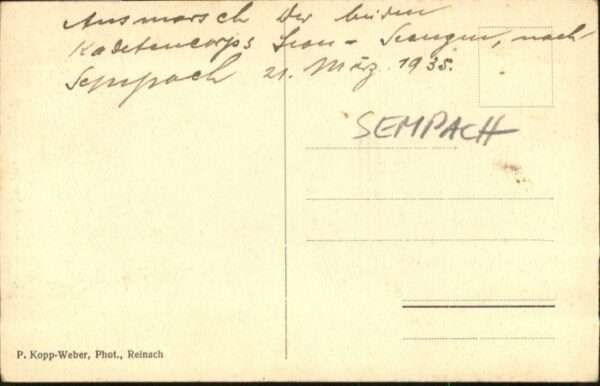 Ausmarsch der beiden
Kadetencorps nach
Sempach 21. März 1935.
SEMPACH
P. Kopp-Weber, Phot., Reinach